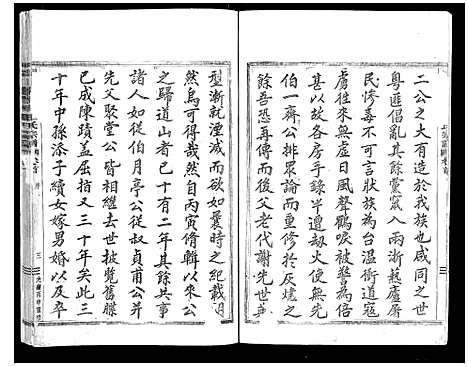 二公之大有造於我族也咸同之世
粵匪倡亂其餘黨竄入兩浙蕪廬屠
民慘毒不可言狀我族為台溫街道寇
虜往來無虛日風聲鶴唳被驚為倍
甚以故各房手錄半遭兵使無先
伯一齋公排眾論而重修於灰燼之
餘吾恐再後十年父老代謝先世事
型漸就湮滅而欲如曩時之紀載明
然烏可得哉然自丙寅脩輯以來公
之歸道山者已二十有二年其餘共事
諸人如從伯月亭公從叔貞甫公并
先父聚堂公皆相繼去世披覽舊牒
已成陳蹟蓋屈指三十年矣此三
十年中孫添子續女嫁男婚以及卒
氏宗譜
三